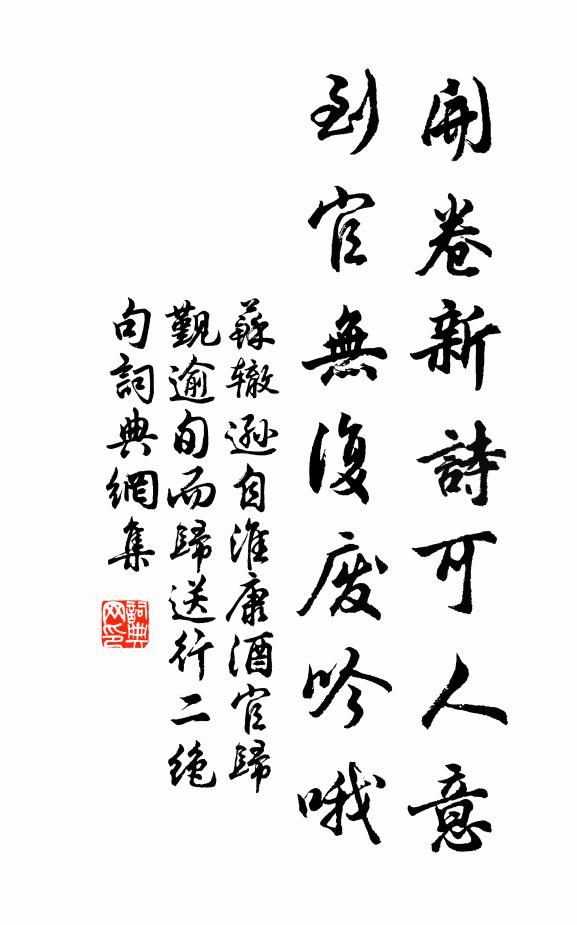 開卷新詩可人意
到官無復廢吟哦
蘇辙遜自淮康酒官歸
覲逾旬而歸送行二絶
句詞典網集
詞典
网印